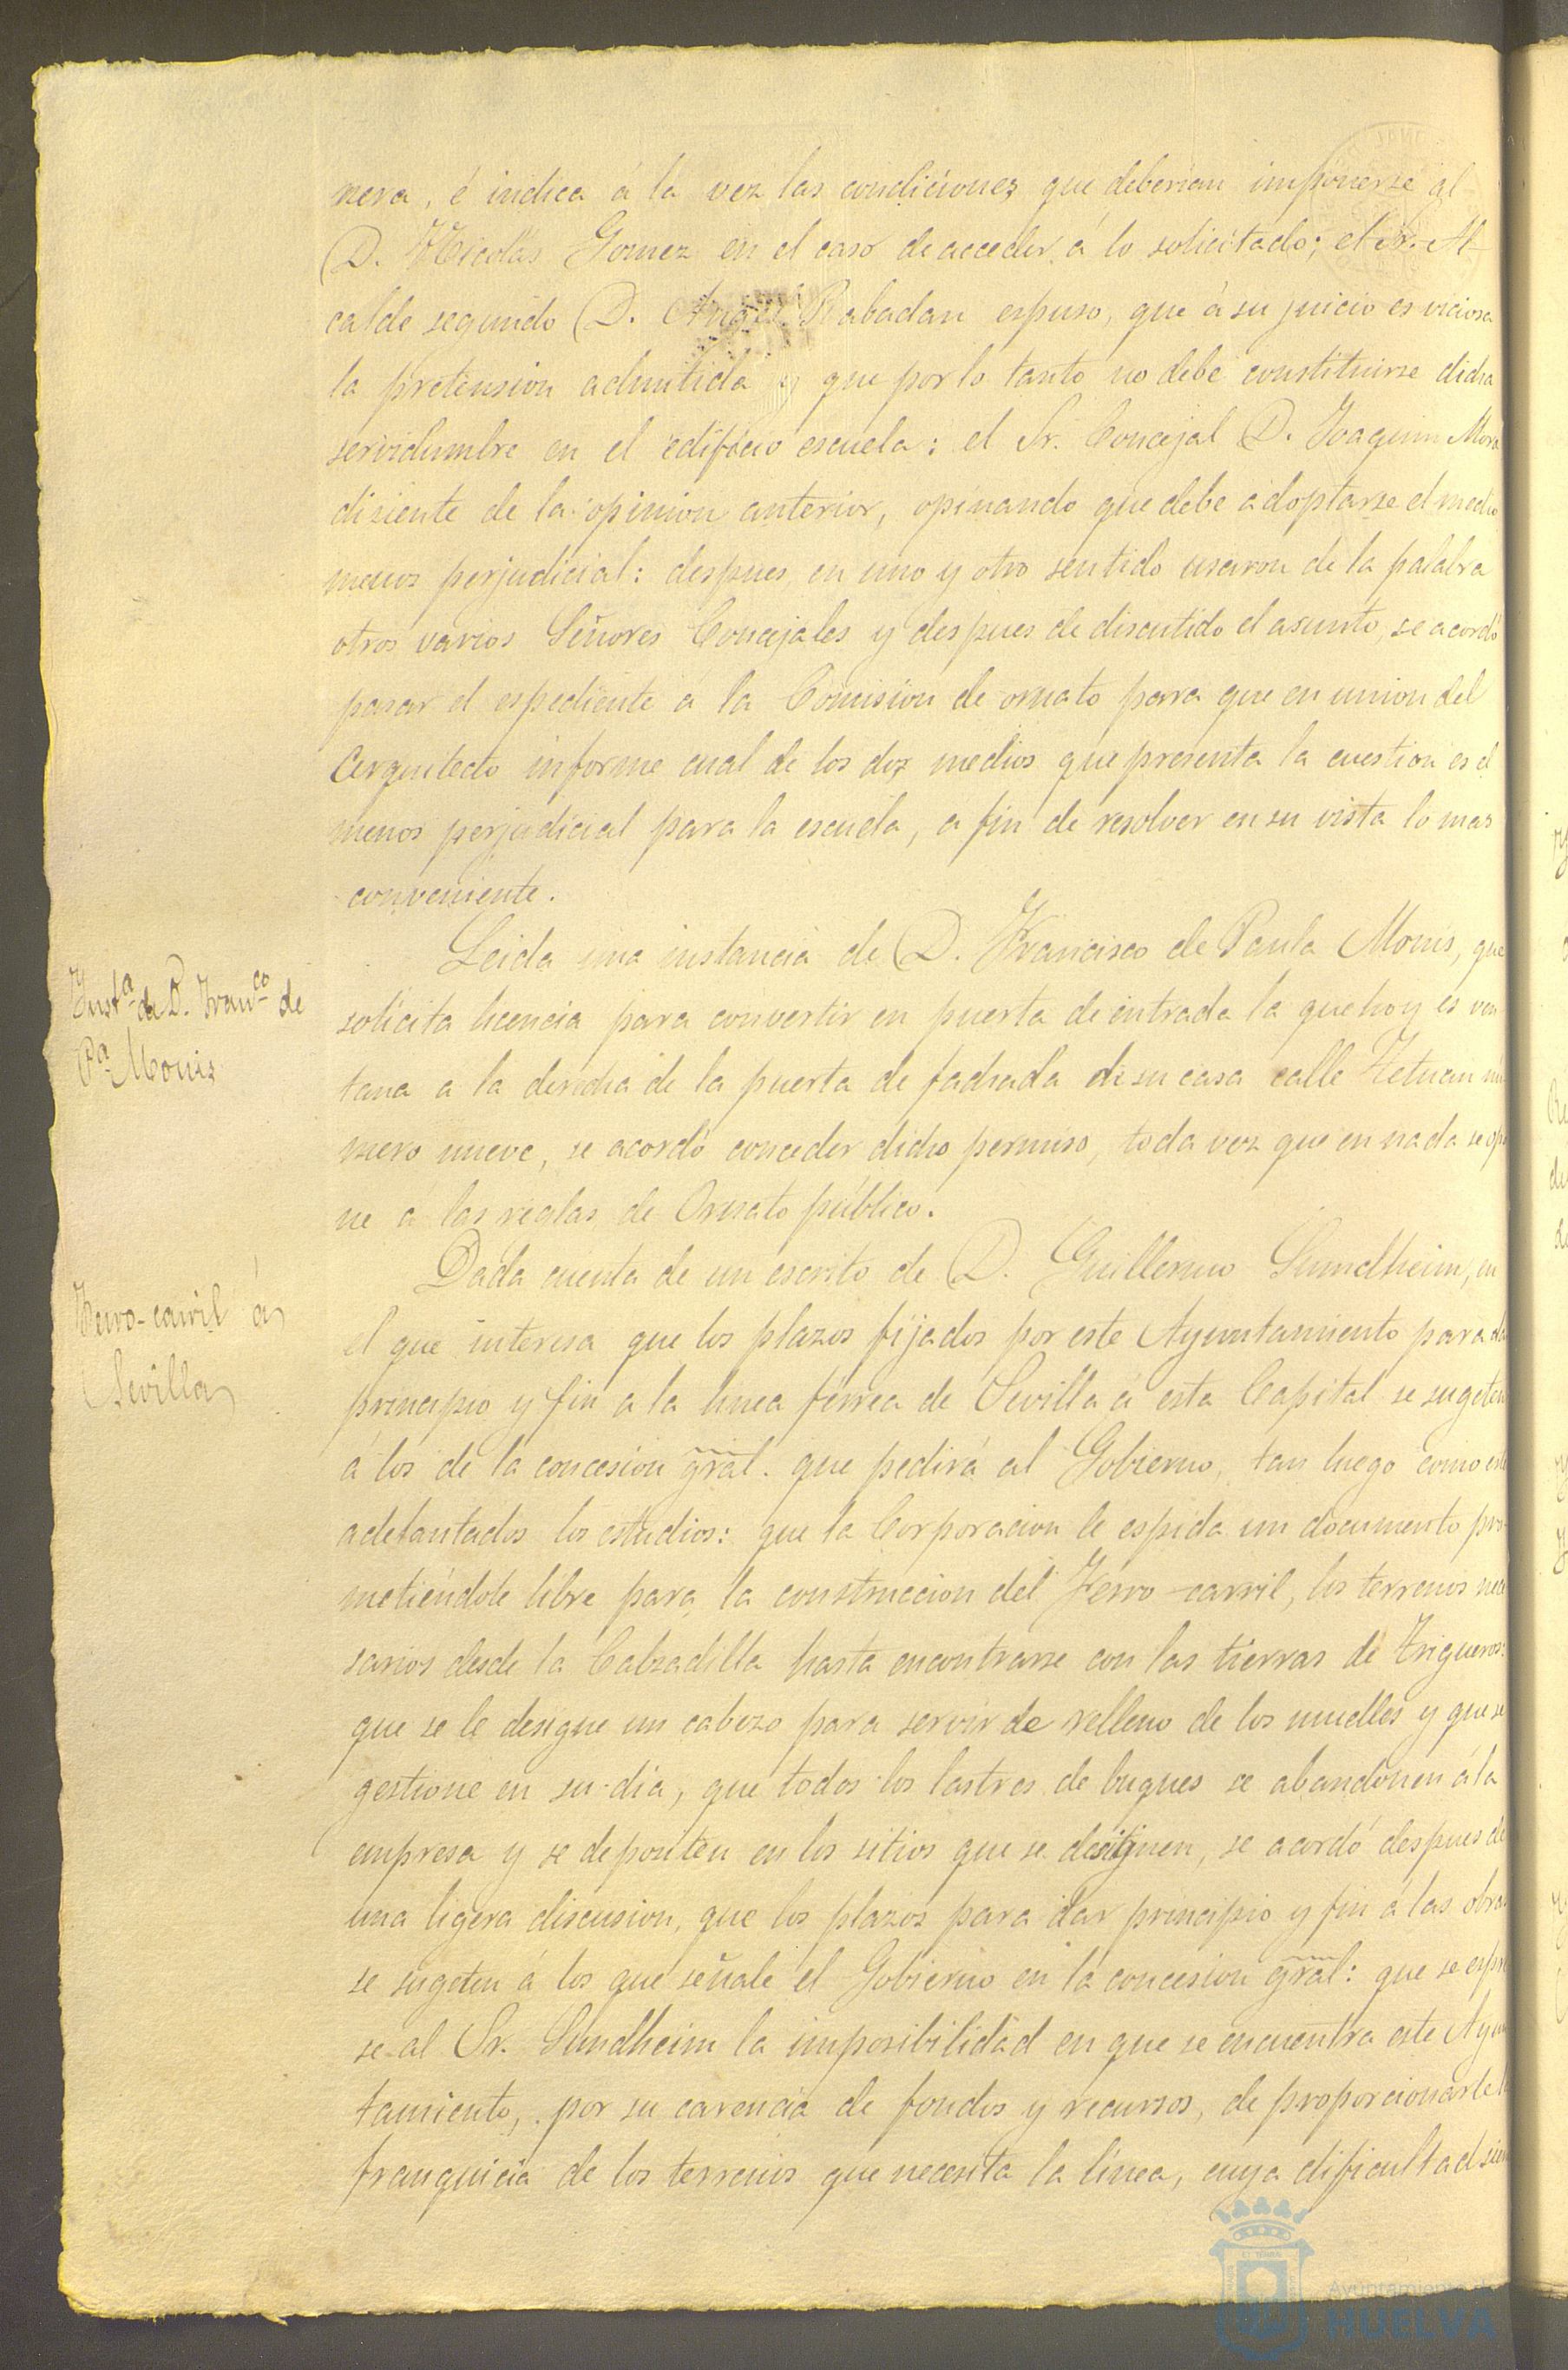 nera, é indica á la vez las condiciones que deberian imponerse al
D. Nicolás Gomez en el caso de acceder á lo solicitado; el Sr. Al-
calde segundo D. Angel Rabadan espuso, que á su juicio es viciosa
la pretension admitida y que por lo tanto no debe constituirse dicha
servidumbre en el edificio escuela: el Sr. Concejal D. Joaquin Mora
disiente de la opinion anterior, opinando que debe adoptarse el medio
menos perjudicial: despues en uno y otro sentido usaron de la palabra
otros varios Señores Concejales y despues de discutido el asunto, se acordó
pasar el espediente a la Comision de ornato para que en union del
Arquitecto informe cual de los dos medios que presenta la cuestion es el
menos perjudicial para la escuela, a fin de resolver en su vista lo mas
conveniente.
Inst.ª de D. Fran.co de
P.ª Monis
Leida una instancia de D. Francisco de Paula Monis, que
solicita licencia para convertir en puerta de entrada la que hoy es ven
tana a la derecha de la puerta de fachada de su casa calle Tetuan nú
mero nueve, se acordó conceder dicho permiso, toda vez que en nada se opo
ne á las reglas de Ornato público.
Ferro-carril á
Sevilla
Dada cuenta de un escrito de D. Guillermo Sundheim, en
el que interesa que los plazos fijados por este Ayuntamiento para dar
principio y fin a la linea férrea de Sevilla á esta Capital se sugeten
á los de la concesion gral. que pedirá al Gobierno, tan luego como esten
adelantados los estudios: que la Corporacion le espida un documento pro-
metiéndole libre para la construccion del Ferro-carril, los terrenos nece
sarios desde la Calzadilla hasta encontrarse con las tierras de Trigueros:
que se le designe un cabezo para servir de relleno de los muelles y que se
gestione en su dia, que todos los lastres de buques se abandonen á la
empresa y se depositen en los sitios que se designen, se acordó despues de
una ligera discusion, que los plazos para dar principio y fin á las obras
se sugeten á los que señale el Gobierno en la concesion gral: que se espre
se al Sr. Sundheim la imposibilidad en que se encuentra este Ayun
tamiento, por su carencia de fondos y recursos, de proporcionarle la
franquicia de los terrenos que necesita la línea, cuya dificultad sien
Ayuntamiento de
HUELVA